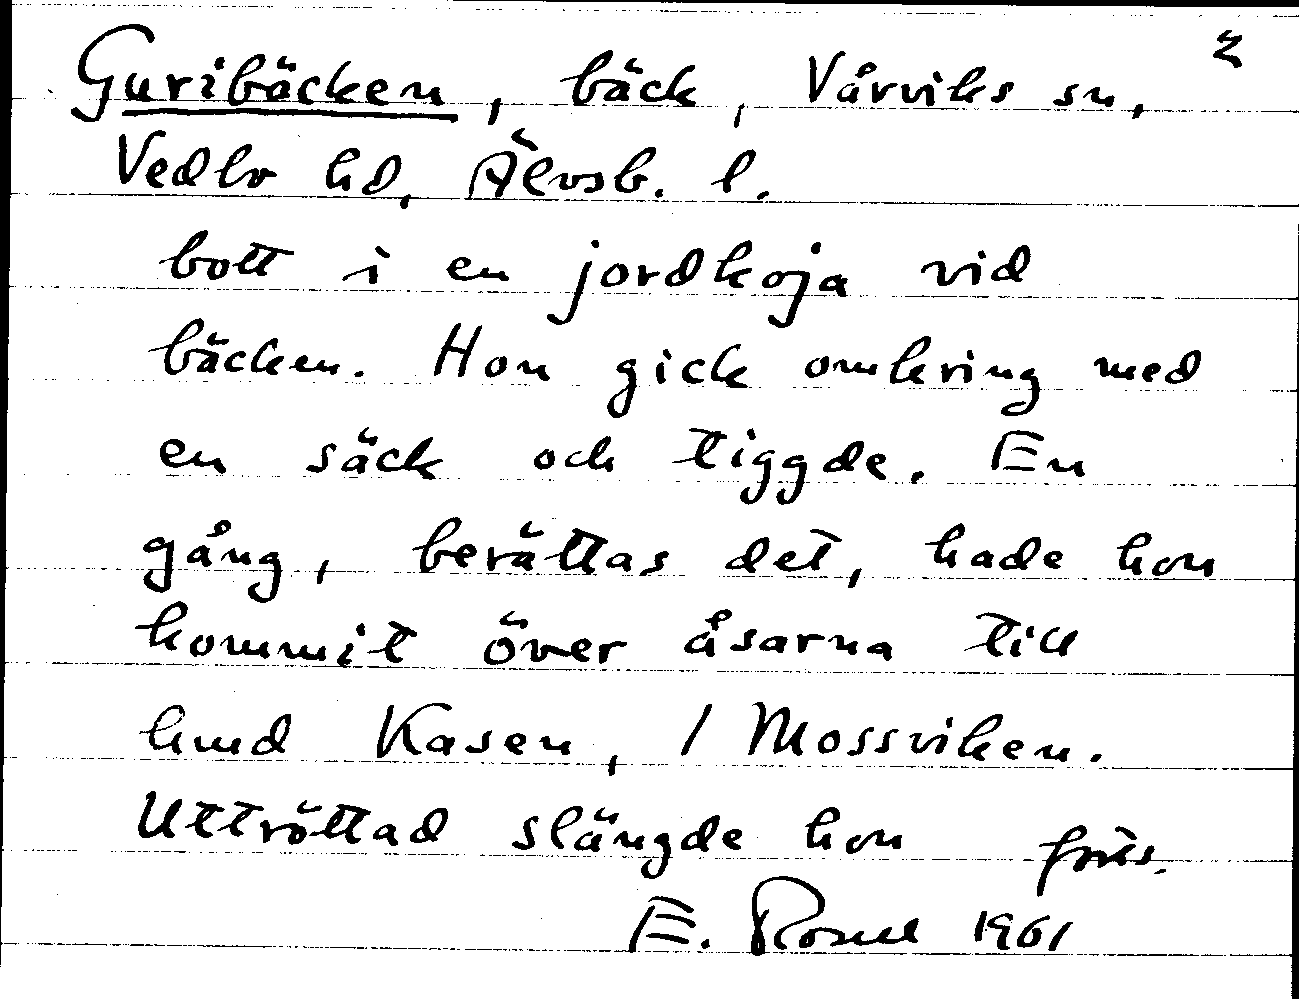 2
Guribäcken, bäck, Vårviks sn,
Vedbo hd, Älvsb. l.
bott i en jordkoja vid
bäcken. Hon gick omkring med
en säck och tiggde. En
gång, berättas det, hade hon
kommit över åsarna till
hmd Kasen, 1 Mossviken.
Uttröttad slängde hon forts.
E. 1961